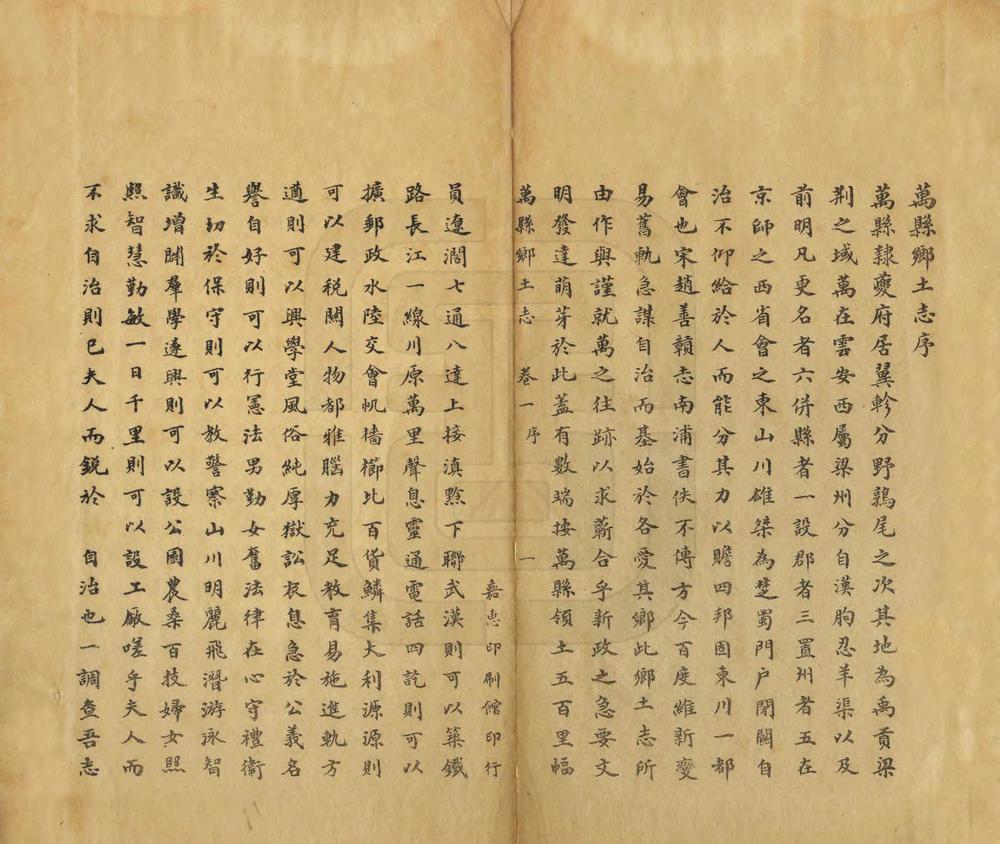 萬縣鄉土志序
萬縣隸夔府居翼軫分野鶉尾之次其地為禹貢梁
荆之域萬在雲安西屬梁州分自漢朐忍羊渠以及
前明凡更名者六併縣者一設郡者三置州者五在
京師之西省會之東山川雄桀為楚蜀門戶閉關自
治不仰給於人而能分其力以贍四邦固東川一都
會也宋趙善贛志南浦書佚不傳方今百度維新變
易舊軌急謀自治而基始於各愛其鄉此鄉土志所
由作與謹就萬之往跡以求蘄合乎新政之急要文
明發達萌芽於此蓋有數端焉萬縣領土五百里幅
萬縣鄉土志 卷一 序 一
嘉惠印刷館印行
員遼濶七通八達上接滇黔下聯武漢則可以築鐵
路長江一線川原萬里聲息靈通電話四訖則可以
擴郵政水陸交會帆檣櫛比百貨鱗集大利源源則
可以建税關人物都雅腦力充足教育易施進軌方
遒則可以興學堂風俗純厚獄訟衰息急於公義名
譽自好則可以行憲法男勤女奮法律在心守禮衛
生切於保守則可以教警察山川明麗飛潛游泳智
識增闢羣學遂興則可以設公園農桑百技婦女熙
熙智慧勤敏一日千里則可以設工廠嗟乎夫人而
不求自治則已夫人而鋭於 自治也一調查吾志